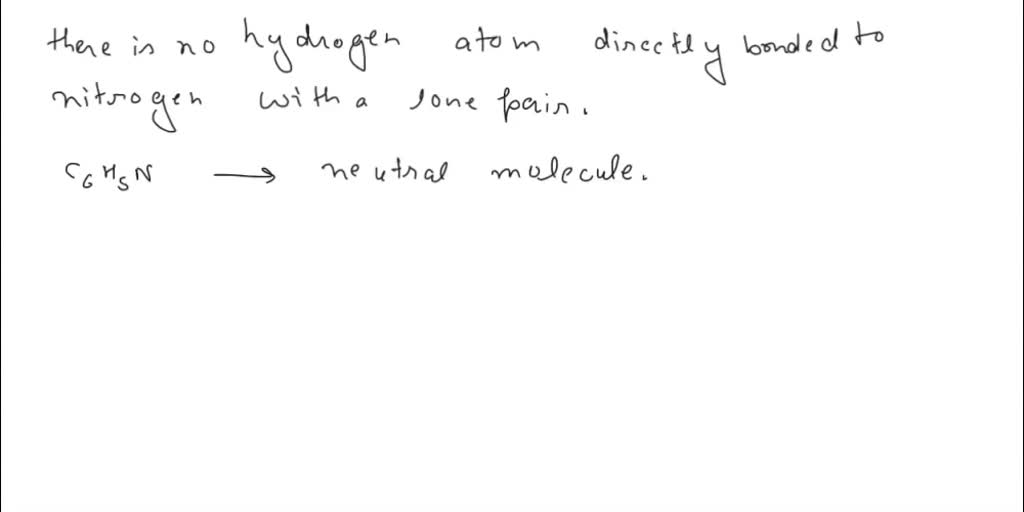 there is no hydrogen atom directly bonded to
nitrogen with a lone pair.
C₆H₅N → neutral molecule.